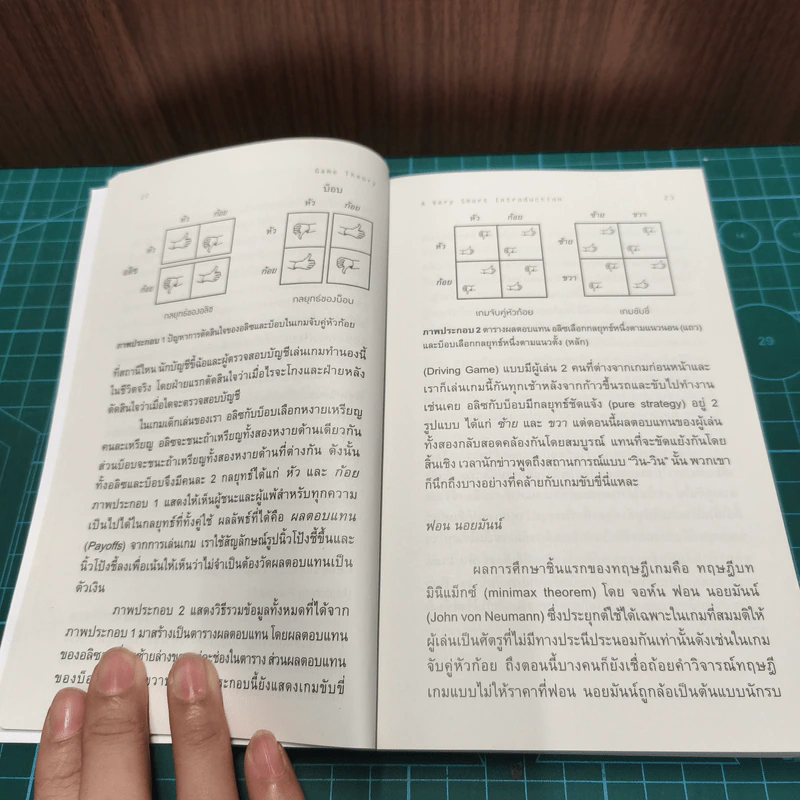 Game Theory
บ็อบ
หัว ก้อย
หัว ก้อย
หัว
หัว
อลิซ
ก้อย
ก้อย
กลยุทธ์ของอลิซ
กลยุทธ์ของบ็อบ
ภาพประกอบ 1 ปัญหาการตัดสินใจของอลิซและบ็อบในเกมจับคู่หัวก้อย
ที่สถานีไหน นักบัญชีขี้ฉ้อและผู้ตรวจสอบบัญชีเล่นเกมทำนองนี้
ในชีวิตจริง โดยฝ่ายแรกตัดสินใจว่าเมื่อไรจะโกงและฝ่ายหลัง
ตัดสินใจว่าเมื่อใดจะตรวจสอบบัญชี
ในเกมเด็กเล่นของเรา อลิซกับบ็อบเลือกหงายเหรียญ
คนละเหรียญ อลิซจะชนะถ้าเหรียญทั้งสองหงายด้านเดียวกัน
ส่วนบ็อบจะชนะถ้าเหรียญทั้งสองหงายด้านที่ต่างกัน ดังนั้น
ทั้งอลิซและบ็อบจึงมีคนละ 2 กลยุทธ์ได้แก่ หัว และ ก้อย
ภาพประกอบ 1 แสดงให้เห็นผู้ชนะและผู้แพ้สำหรับทุกความ
เป็นไปได้ในกลยุทธ์ที่ทั้งคู่ใช้ ผลลัพธ์ที่ได้คือ ผลตอบแทน
(Payoffs) จากการเล่นเกม เราใช้สัญลักษณ์รูปนิ้วโป้งชี้ขึ้นและ
นิ้วโป้งชี้ลงเพื่อเน้นให้เห็นว่าไม่จำเป็นต้องวัดผลตอบแทนเป็น
ตัวเงิน
ภาพประกอบ 2 แสดงวิธีรวมข้อมูลทั้งหมดที่ได้จาก
ภาพประกอบ 1 มาสร้างเป็นตารางผลตอบแทน โดยผลตอบแทน
ของอลิซ ซ้ายล่างของ ช่องในตาราง ส่วนผลตอบแทน
ของบ็อ ประกอบนี้ยังแสดงเกมขับขี่
A Very Short Introduction 23
หัว ก้อย
ซ้าย ขวา
หัว
ซ้าย
ก้อย
ขวา
เกมจับคู่หัวก้อย
เกมขับขี่
ภาพประกอบ 2 ตารางผลตอบแทน อลิซเลือกกลยุทธ์หนึ่งตามแนวนอน (แถว)
และบ็อบเลือกกลยุทธ์หนึ่งตามแนวตั้ง (หลัก)
(Driving Game) แบบมีผู้เล่น 2 คนที่ต่างจากเกมก่อนหน้าและ
เราก็เล่นเกมนี้กันทุกเช้าหลังจากก้าวขึ้นรถและขับไปทำงาน
เช่นเคย อลิซกับบ็อบมีกลยุทธ์ชัดแจ้ง (pure strategy) อยู่ 2
รูปแบบ ได้แก่ ซ้าย และ ขวา แต่ตอนนี้ผลตอบแทนของผู้เล่น
ทั้งสองกลับสอดคล้องกันโดยสมบูรณ์ แทนที่จะขัดแย้งกันโดย
สิ้นเชิง เวลานักข่าวพูดถึงสถานการณ์แบบ "วิน-วิน" นั้น พวกเขา
ก็นึกถึงบางอย่างที่คล้ายกับเกมขับขี่นี้แหละ
ฟอน นอยมันน์
ผลการศึกษาชิ้นแรกของทฤษฎีเกมคือ ทฤษฎีบท
มินิแม็กซ์ (minimax theorem) โดย จอห์น ฟอน นอยมันน์
(John von Neumann) ซึ่งประยุกต์ใช้ได้เฉพาะในเกมที่สมมติให้
ผู้เล่นเป็นศัตรูที่ไม่มีทางประนีประนอมกันเท่านั้นดังเช่นในเกม
จับคู่หัวก้อย ถึงตอนนี้บางคนก็ยังเชื่อถ้อยคำวิจารณ์ทฤษฎี
เกมแบบไม่ให้ราคาที่ฟอน นอยมันน์ถูกล้อเป็นต้นแบบนักรบ